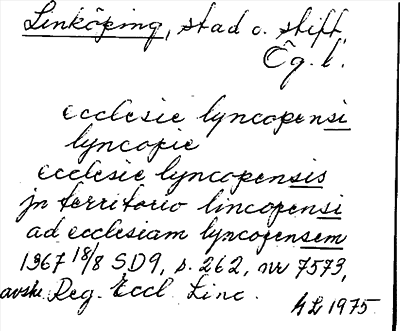 Linköping, stad o. stift,
Ög. l.
ecclesie lyncopensi
lyncopie
ecclesie lyncopensis
jn territorio lincopensi
ad ecclesiam lyncopensem
1367 18/8 SD9, s. 262, nr 7573,
avskr. Reg. Eccl. Linc.
HL 1975